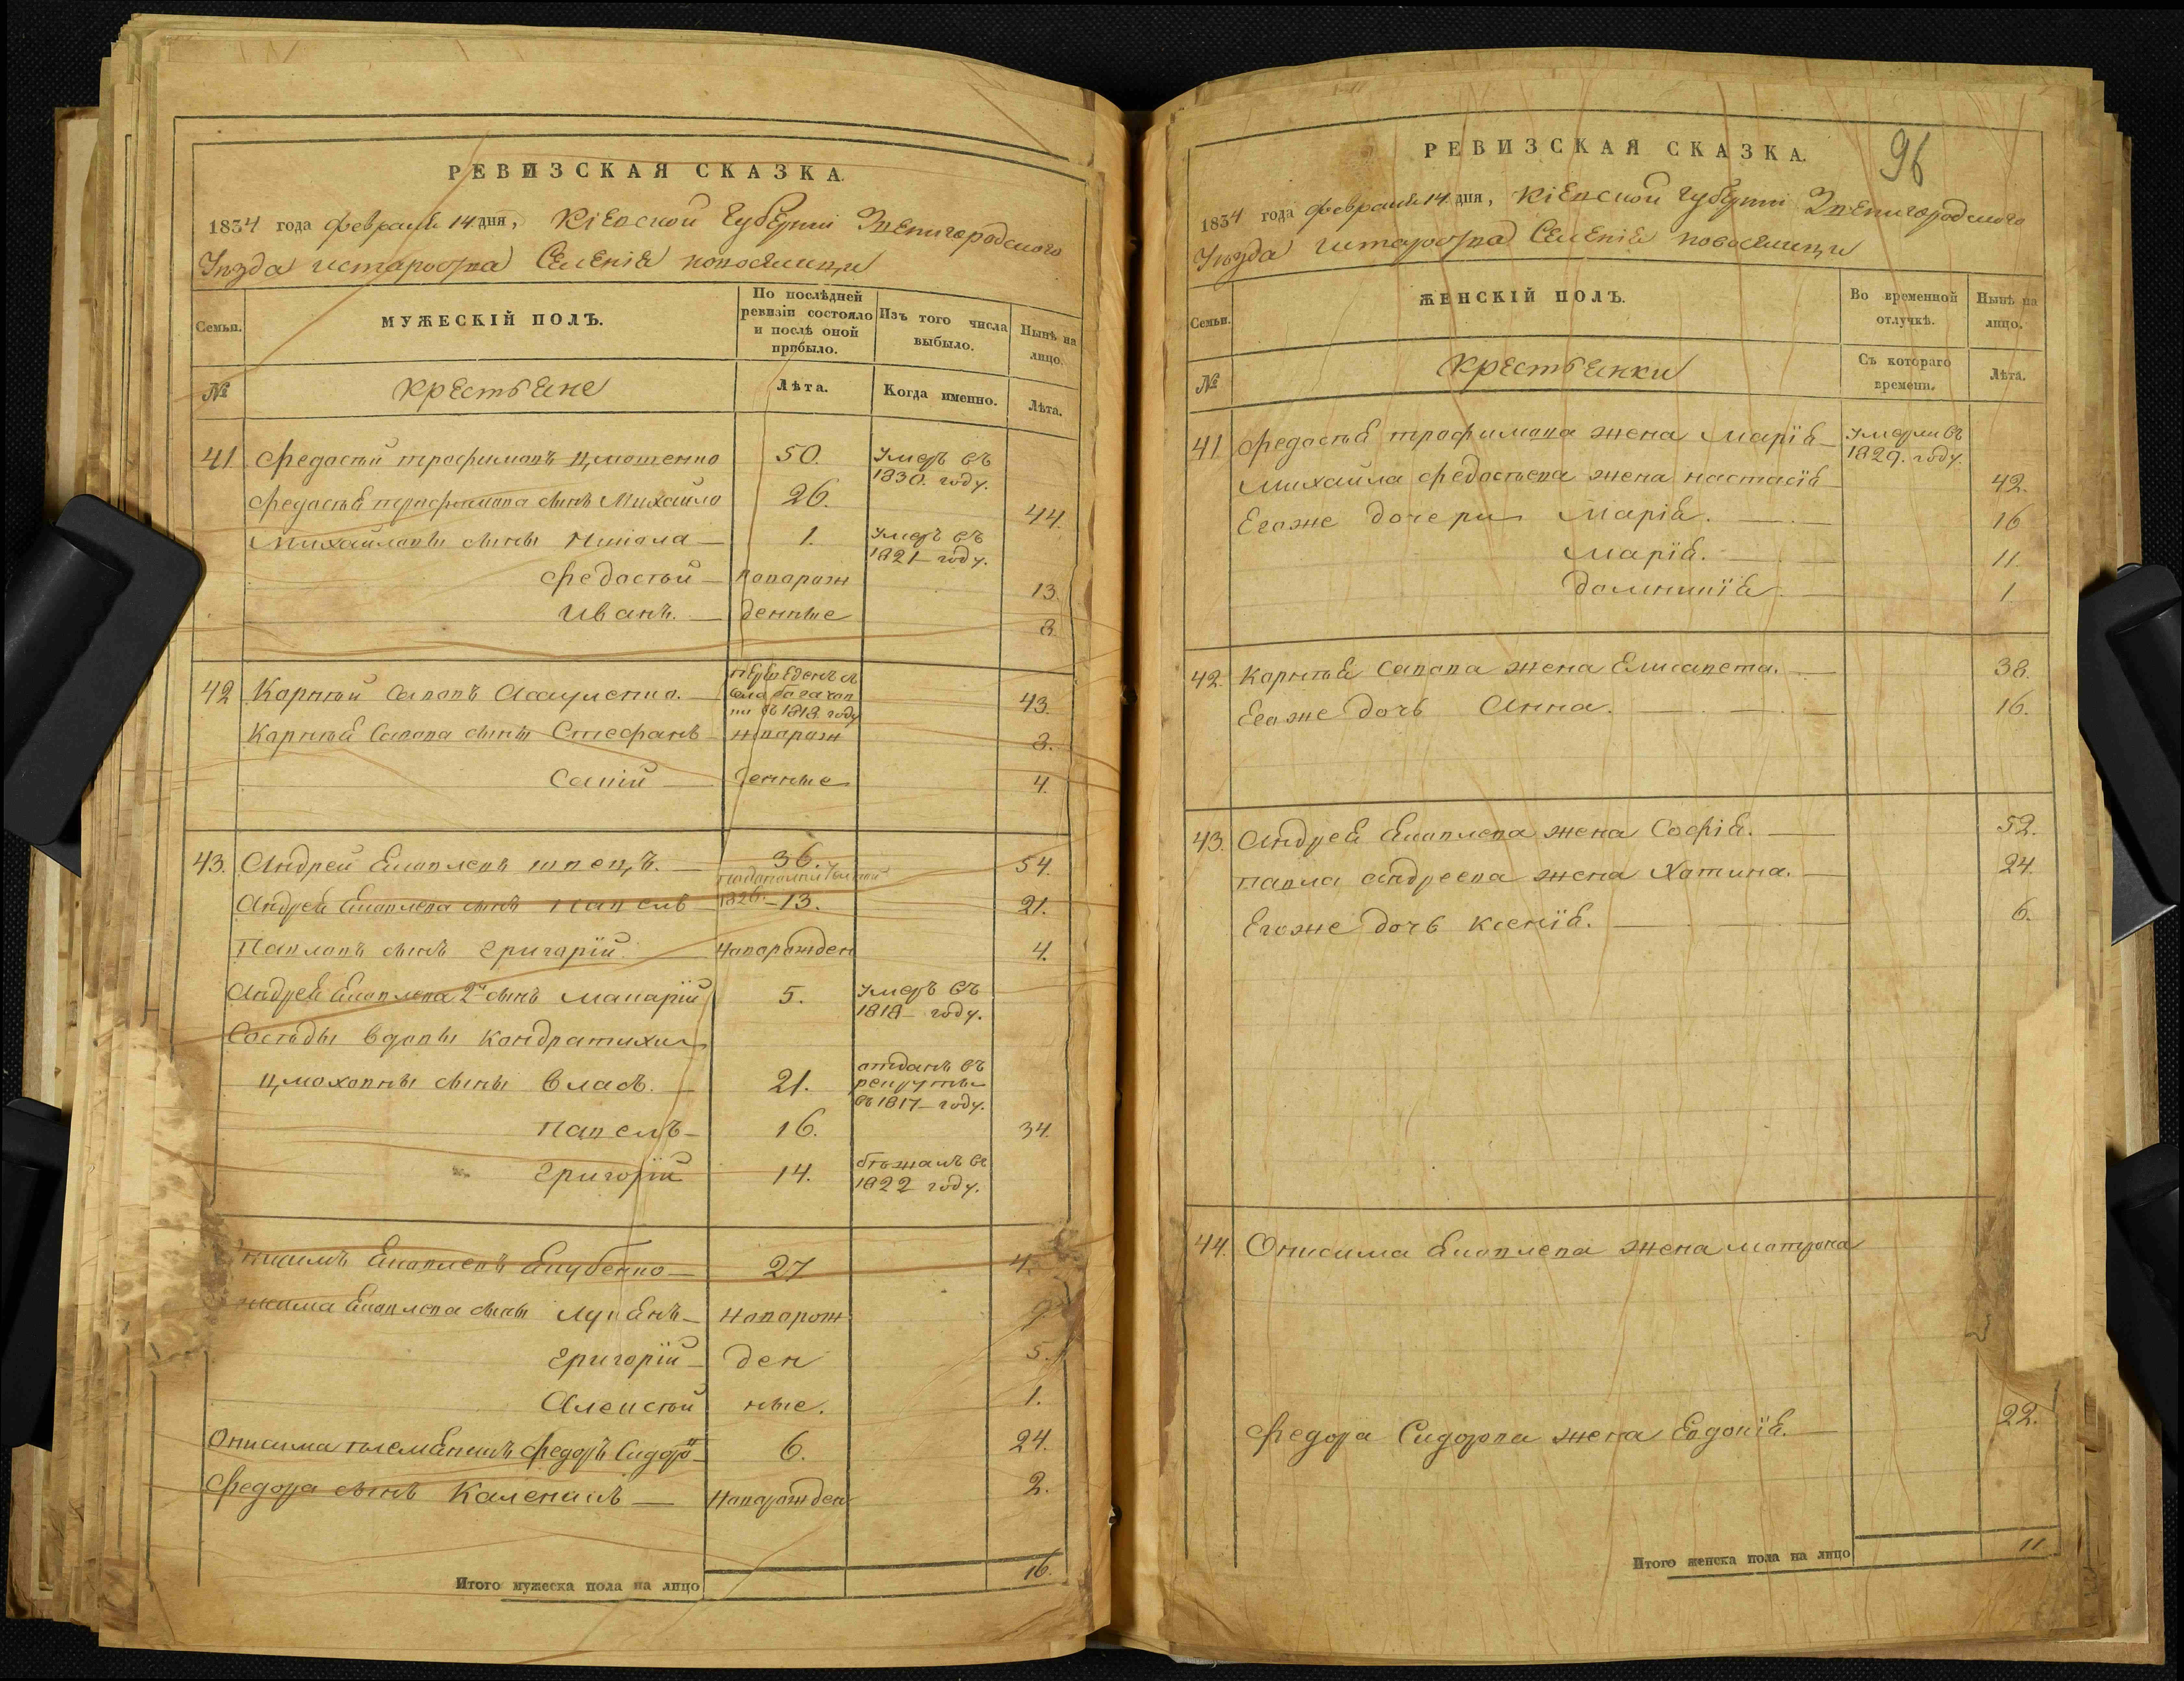 РЕВИЗСКАЯ СКАЗКА.
1834 года февраля 14 дня, Кіевской Губерніи Звенигородского
Уѣзда Староства Селенія
МУЖЕСКІЙ ПОЛЪ.
Семьи.
По послѣдней
ревизіи состояло
и послѣ оной
прибыло.
Изъ того числа
выбыло.
Нынѣ на
лицо.
№
крестьяне
Лѣта.
Когда именно.
Лѣта.
41 Федосѣй трофимовъ 50. Умеръ въ
1830. году.
Федосѣя трофимова сынъ Михайло 26. 44.
Михайловы сыны Никола 1. Умеръ въ
1821 году.
Федосѣй новорож 13.
Иванъ. денные 8.
42 Корнѣй Савовъ переведенъ
43.
въ 1818 году
Корнѣя Савова сыны Стефанъ новорож 8.
Савій денные 4.
43. Андрей Яковлевъ швецъ. 36. 54.
1826.
Андрея Яковлева сынъ Павелъ 13. 21.
Павловъ сынъ григорій новорожден 4.
Андрея Яковлева 2й сынъ макарій 5. Умеръ въ
1818 году.
Сосѣды вдовы Кондратихи
сыны Власъ. 21. отданъ въ
рекруты
въ 1817 году.
Павелъ 16. 34.
григорій 14. бѣжалъ въ
1822 году.
Яковлевъ Якубенко 27 4.
Яковлева сыны Лукянъ новорож
григорій ден 5.
Алексѣй ные. 1.
Онисима племянникъ Федоръ Сидоро 6. 24.
Федора сынъ Каленикъ новорожден 2.
Итого мужеска пола на лицо 16.
РЕВИЗСКАЯ СКАЗКА.
96
1834 года февраля 14 дня, Кіевской губерніи Звенигородского
Уѣзда Староства Селенія
ЖЕНСКІЙ ПОЛЪ.
Семьи.
Во временной
отлучкѣ.
Нынѣ на
лицо.
№
крестьянки
Съ котораго
времени.
Лѣта.
41 Федосѣя трофимова жена Марія умерли въ
1829. году.
Михайла Федосѣева жена настасія 42.
Егоже дочери Марія. 16
Марія. 11.
домникія 1.
42. Корнѣя Савова жена Елисавета. 38.
Егоже дочь Анна. 16.
43. Андрея Яковлева жена Софія. 52.
павла андреева жена Хотина. 24.
Егоже дочь ксенія. 6.
44. Онисима Яковлева жена мотрона
Федора Сидорова жена Евдокія. 22.
Итого женска пола на лицо 11